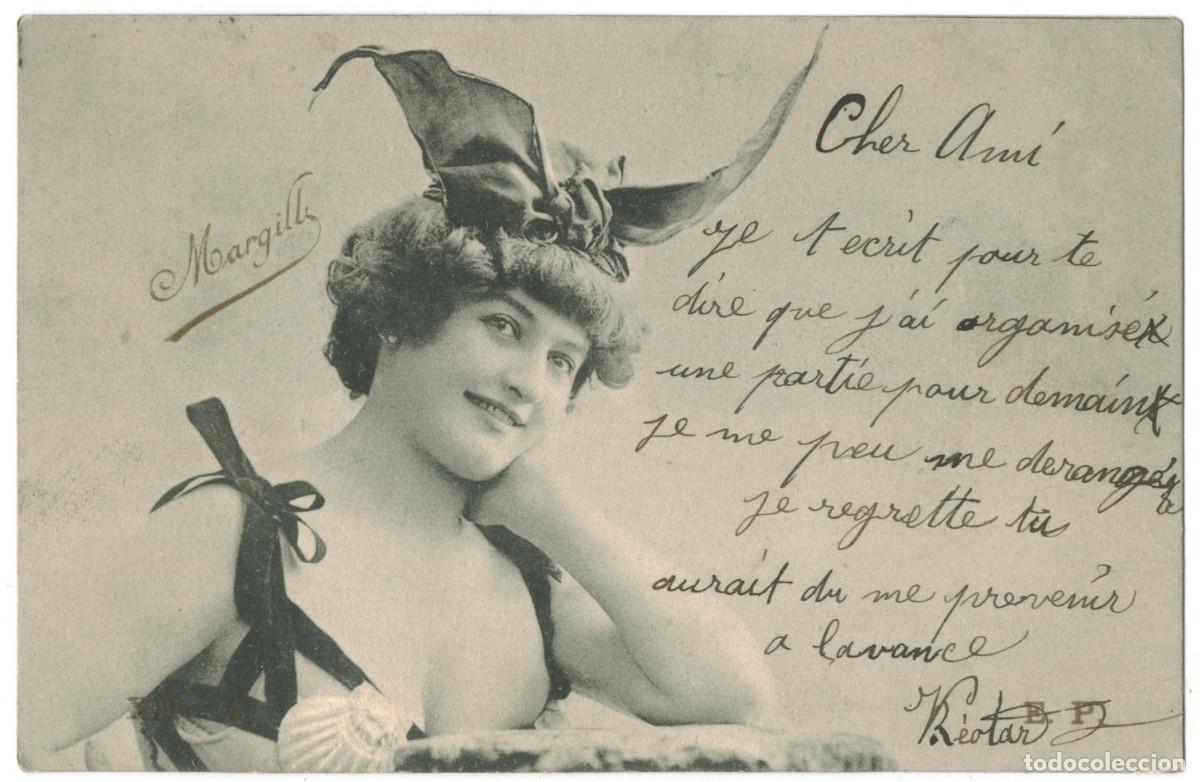 Cher Ami
Margill
je t ecrit pour te
dire que j'ai organisé
une partie pour demain
je me peu me derangé
je regrette tu
aurait du me prevenir
a lavance
Kéotar
E. P.
todocoleccion